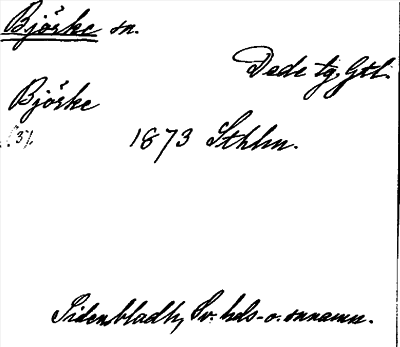 Björke sn.
Dede tg, Gtl.
Björke
(3).
1873 Sthlm.
Sidenbladh, Sv. hds- o. snnamn.